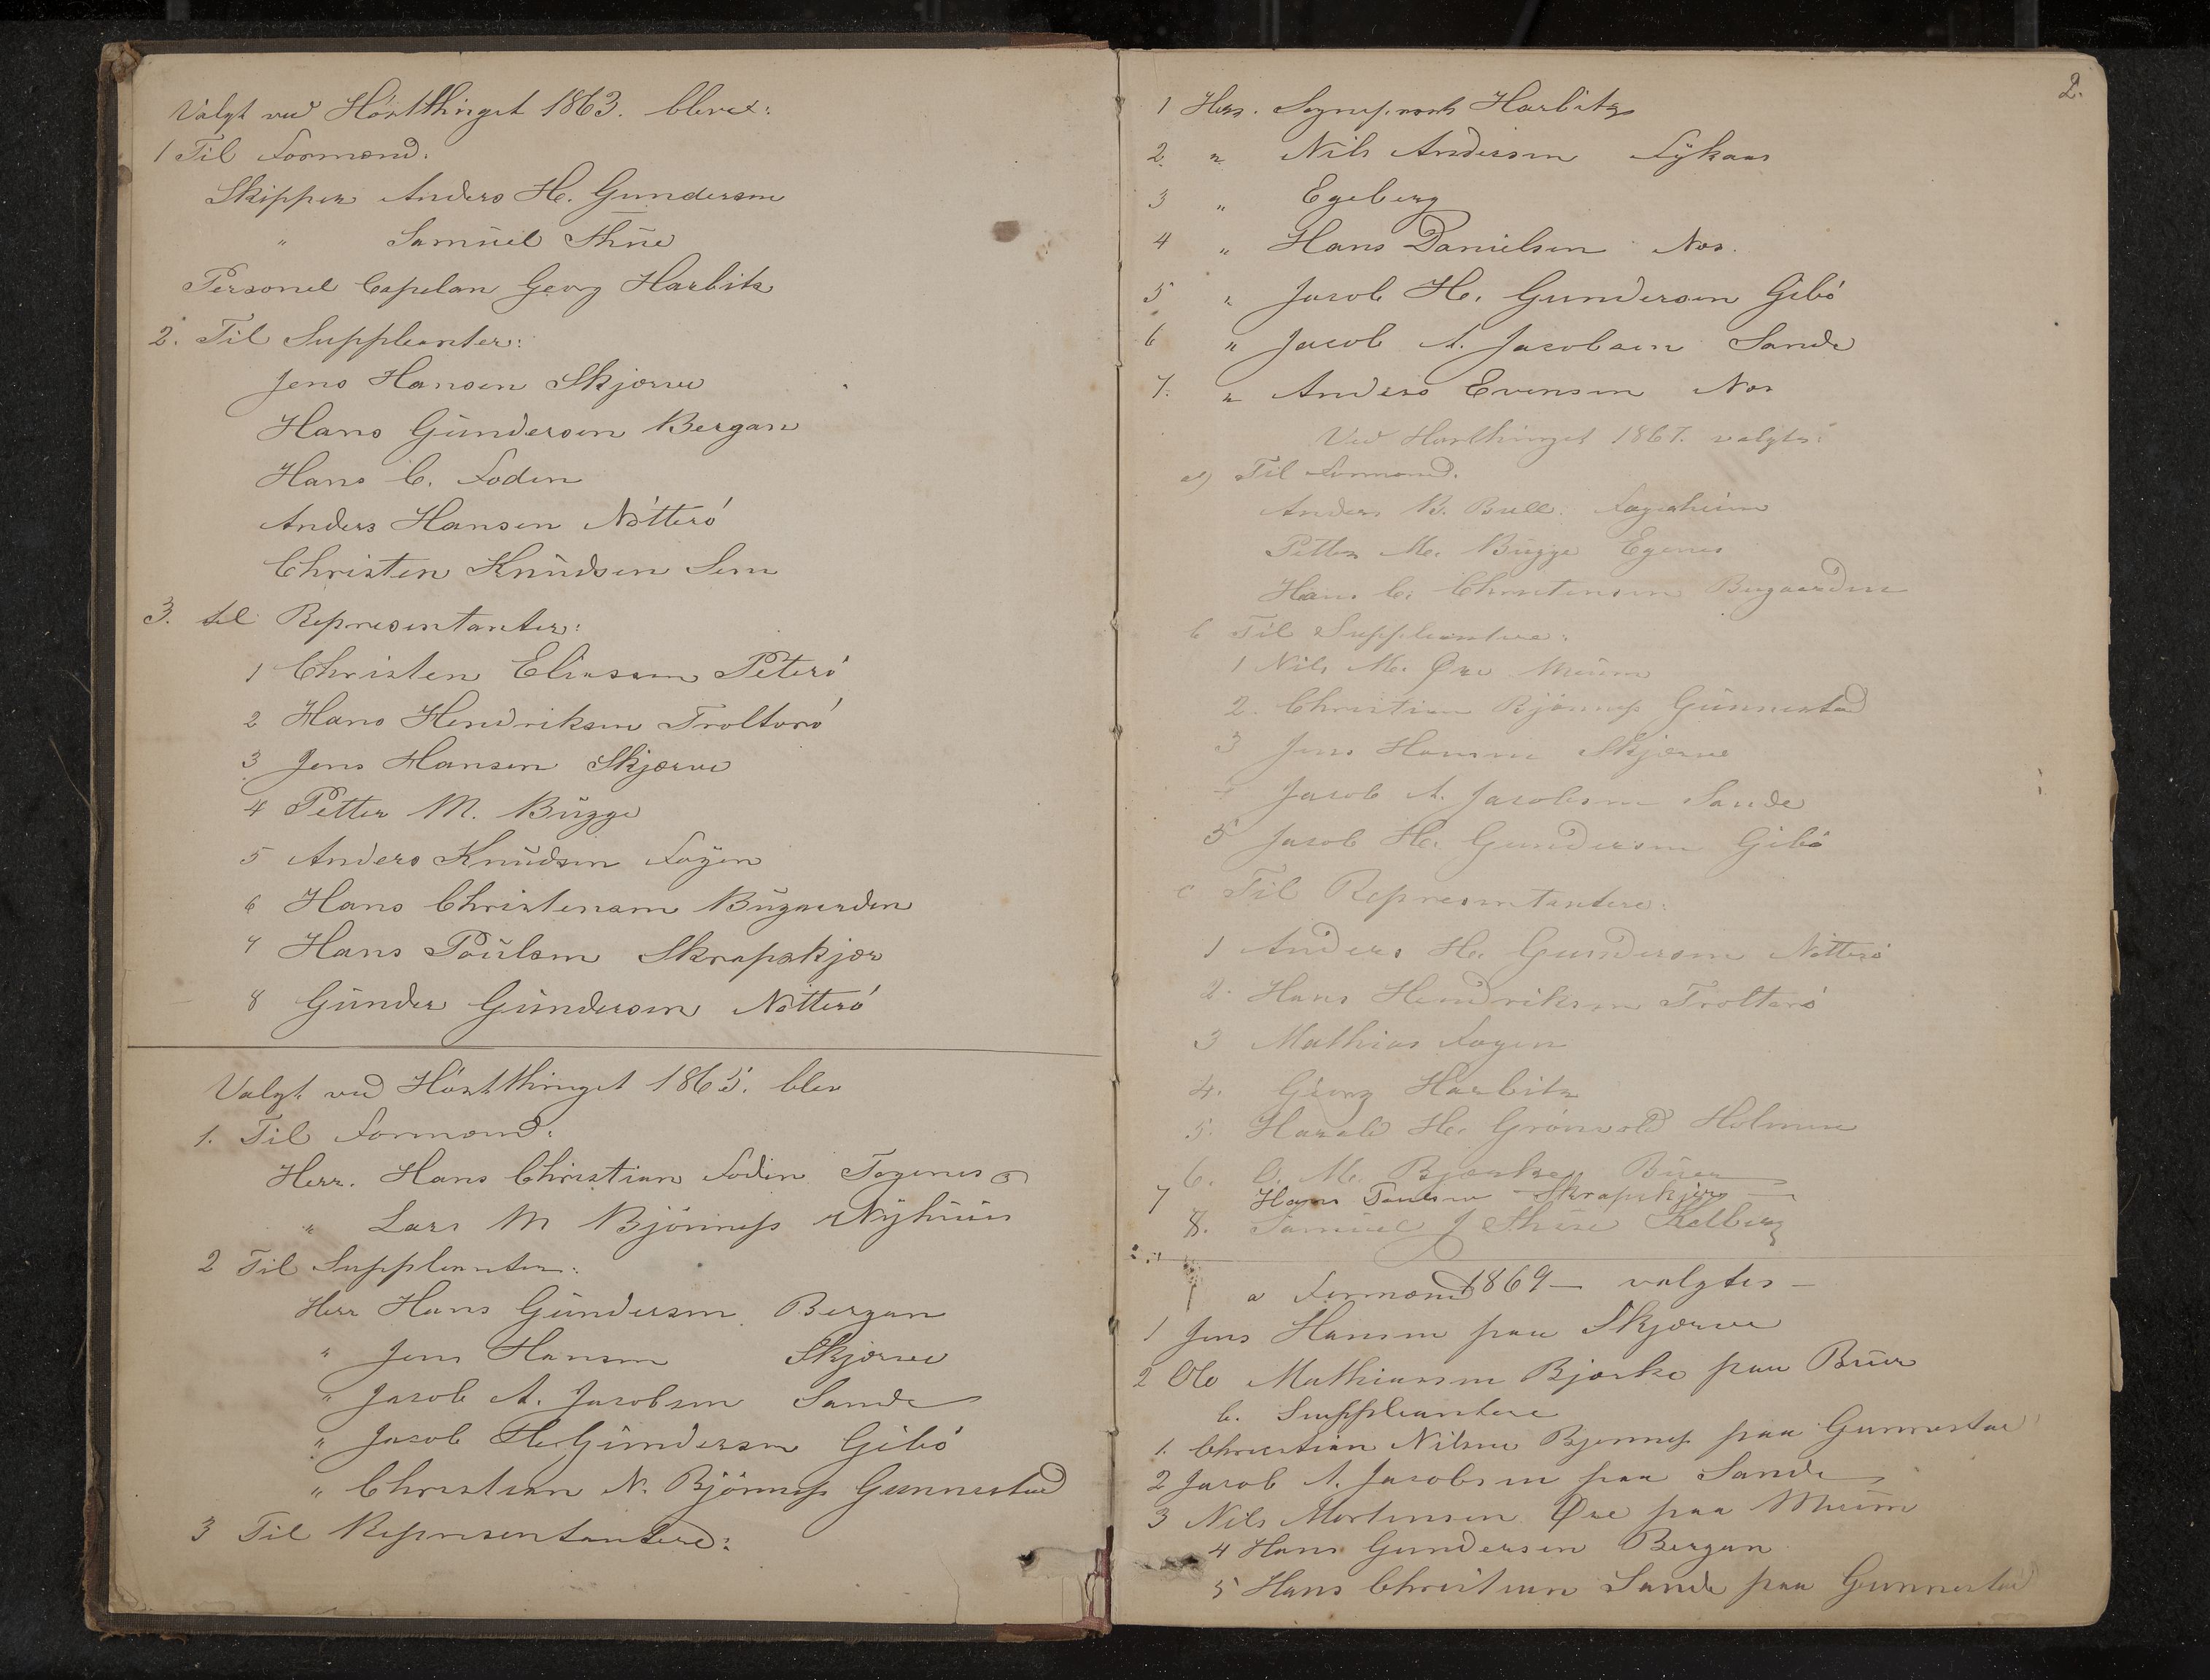 Valgt ved Høstthinget 1863. blevet:
1 Til Formænd.
Skipper Anders H. Gundersen
" Samuel Thue
Personel Capelan Georg Harbitz
2. Til Suppleanter:
Jens Hansen Skjærve
Hans Gundersen Bergan
Hans C. Foden
Anders Hansen Nötterö
Christen Knudsen Sem
3. til Representanter:
1 Christen Eliassen Veierö
2 Hans Hendriksen Trolterö
3 Jens Hansen Skjærve
4 Petter M. Bugge
5 Anders Knudsen Føyen
6 Hans Christensen Bugaarden
7 Hans Poulsen Skrapskjær
8 Gunder Gundersen Nötterö
Valgt ved Høstthinget 1865. blev
1. Til Formænd:
Herr. Hans Christian Foden
" Lars M Bjönness Nyhuus
2 Til Suppleanter:
Herr Hans Gundersen Bergan
" Jens Hansen Skjærve
" Jacob A. Jacobsen Sande
" Jacob H. Gundersen Gibö
" Christian N. Bjönness Gunnestad
3 Til Representantere:
2.
1 Herr. Sogneprest Harbitz
2. " Nils Andersen
3 " Egeberg
4 " Hans Danielsen Nes.
5 " Jacob H. Gundersen Gibö
6 " Jacob A. Jacobsen Sande
7. " Anders Evensen Nes
Ved Høstthinget 1867. valgtes:
a) Til Formænd.
Anders B. Bull. Fagerheim
Petter M. Bugge Egenes
Hans C. Christensen Bugaarden
b Til Suppleantere:
1 Nils M. Øre Meum
2. Christian Bjönness Gunnestad
3 Jens Hansen Skjærve
4 Jacob A. Jacobsen Sande
5 Jacob H. Gundersen Gibö
c Til Representantere:
1 Anders H. Gundersen Nötterö
2. Hans Hendriksen Trolterö
3 Mathias Føyen
4. Georg Harbitz
5. Harald H. Grönvold Holmen
6. O. M. Bjærke Buer
7 Hans Poulsen Skrapskjær
8. Samuel J Thue Kolberg
a Formænd 1869 — valgtes —
1 Jens Hansen paa Skjærve
2 Ole Mathiassen Bjærke paa Buer
b. Suppleantere
1. Christian Nilsen Bjønness paa Gunnestad
2 Jacob A. Jacobsen paa Sande
3 Nils Mortensen Øre paa Meum
4 Hans Gundersen Bergan
5 Hans Christian Sande paa Gunnestad